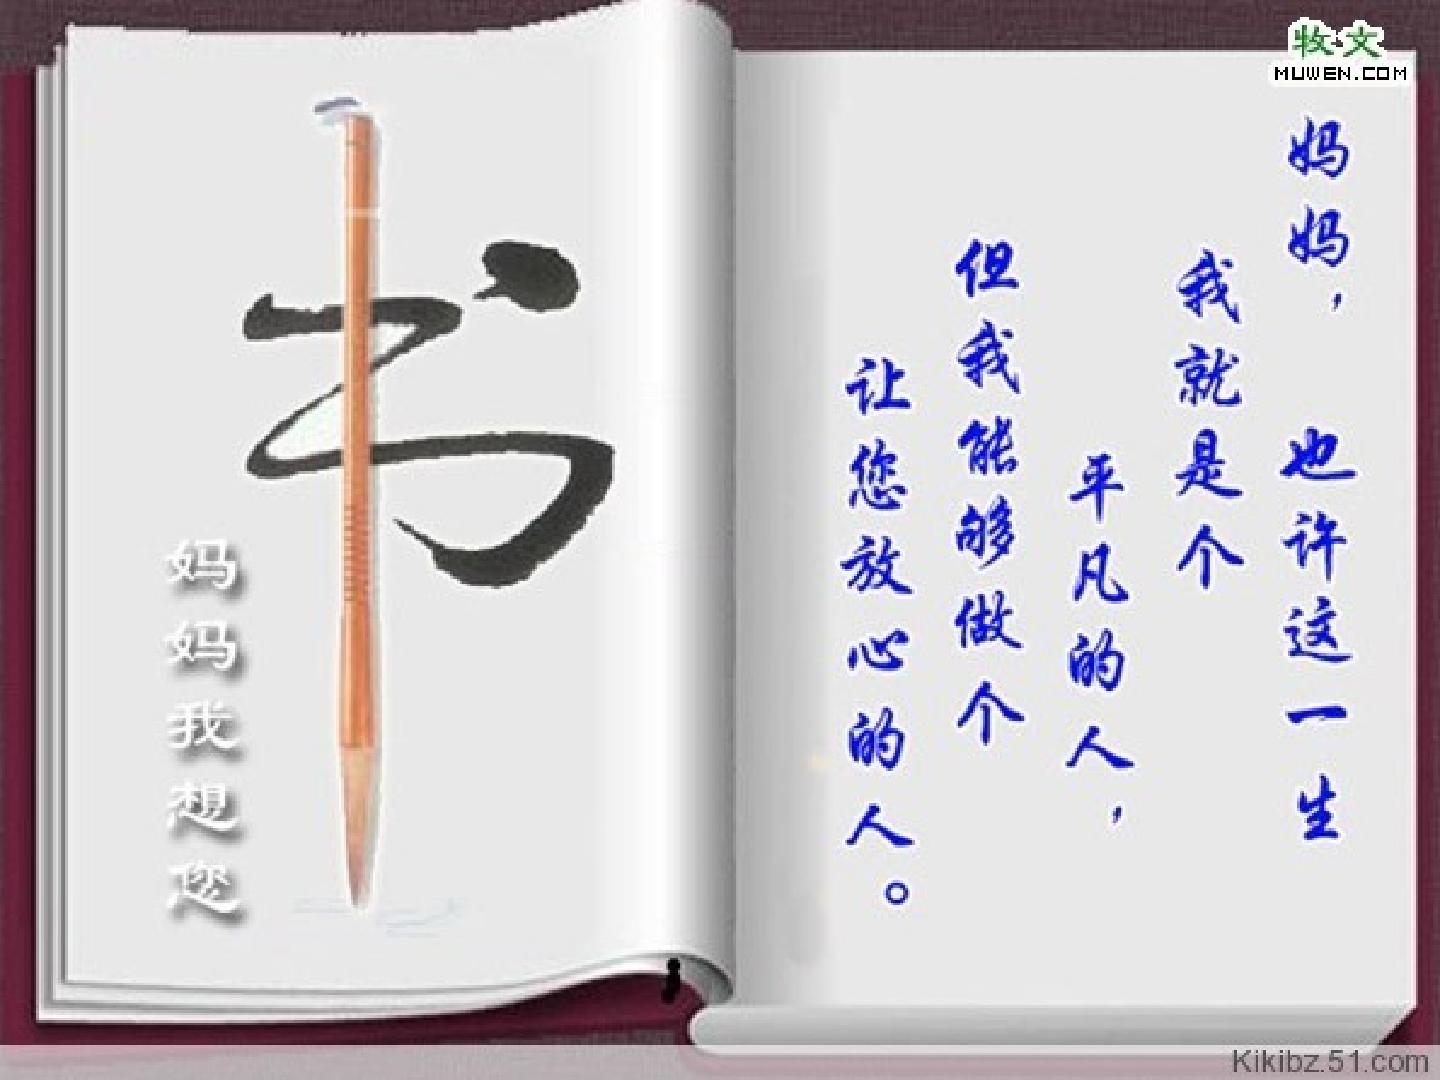 牧文
MUWEN.COM
书
妈妈我想您
妈妈，也许这一生
我就是个
平凡的人，
但我能够做个
让您放心的人。
Kikibz.51.com